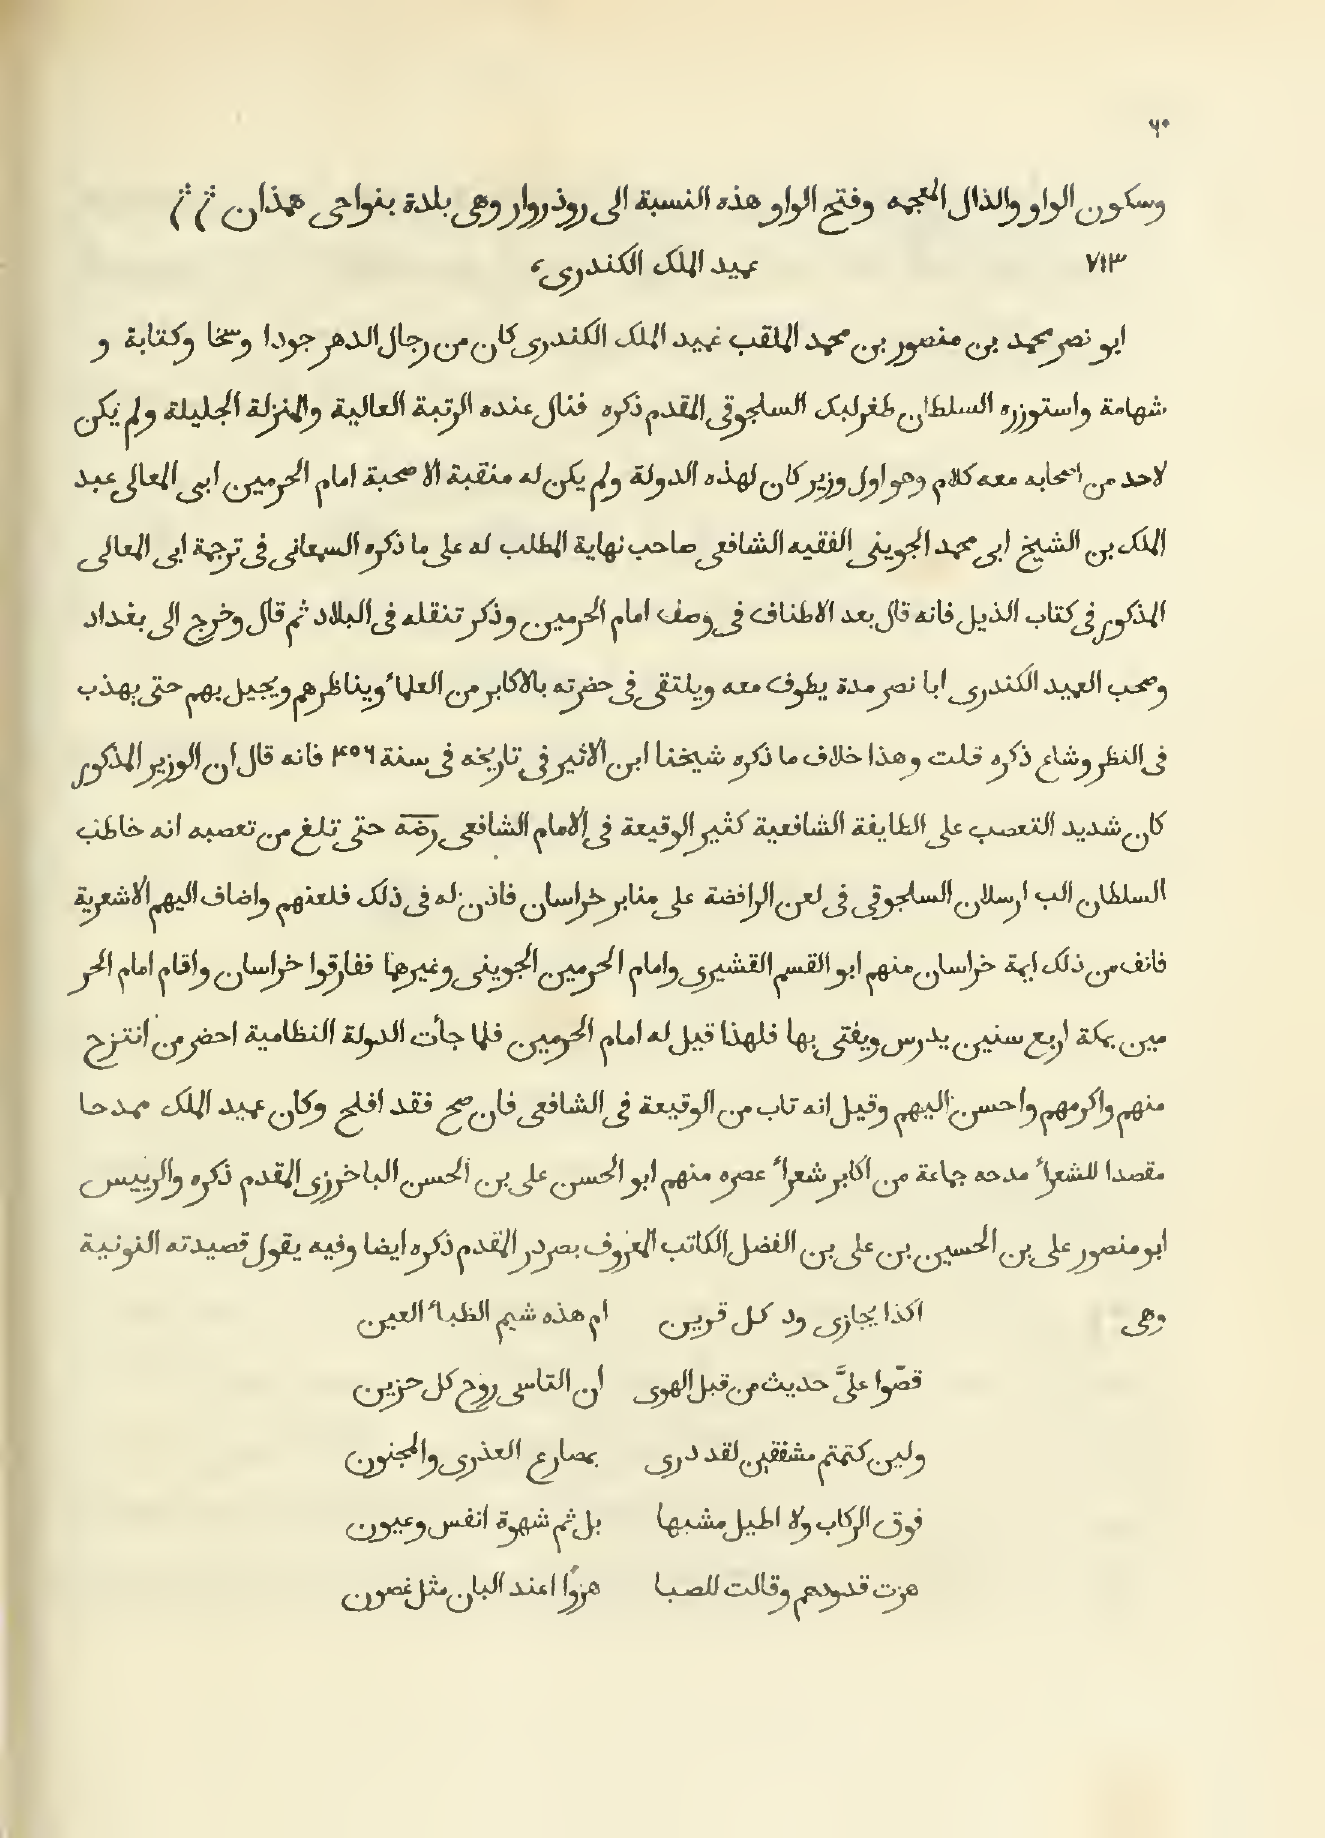 ٦٠
وسكون الواو والذال المعجمه وفتح الواو هذه النسبة الى روذروار وهى بلدة بنواحى همذان
٧١٣ عميد الملك الكندرى
ابو نصر محمد بن منصور بن محمد الملقب عميد الملك الكندرى كان من رجال الدهر جودا وسخا وكتابة و
شهامة واستوزره السلطان طغرلبك السلجوقى المقدم ذكره فنال عنده الرتبة العالية والمنزلة الجليلة ولم يكن
لاحد من اصحابه معه كلام وهو اول وزير كان لهذه الدولة ولم يكن له منقبة الا صحبة امام الحرمين ابى المعالى عبد
الملك بن الشيخ ابى محمد الجوينى الفقيه الشافعى صاحب نهاية المطلب له على ما ذكره السمعانى فى ترجمة ابى المعالى
المذكور فى كتاب الذيل فانه قال بعد الاطناف فى وصف امام الحرمين وذكر تنقله فى البلاد ثم قال وخرج الى بغداد
وصحب العميد الكندرى ابا نصر مدة يطوف معه ويلتقى فى حضرته بالاكابر من العلمآ ويناظرهم ويجيل بهم حتى يهذب
فى النظر وشاع ذكره قلت وهذا خلاف ما ذكره شيخنا ابن الاثير فى تاريخه فى سنة ٤٥٦ فانه قال ان الوزير المذكور
كان شديد التعصب على الطايفة الشافعية كثير الوقيعة فى الامام الشافعى رضه حتى تلغ من تعصبه انه خاطب
السلطان الب ارسلان السلجوقى فى لعن الرافضة على منابر خراسان فاذن له فى ذلك فلعنهم واضاف اليهم الاشعرية
فانف من ذلك ايمة خراسان منهم ابو القسم القشيرى وامام الحرمين الجوينى وغيرهما ففارقوا خراسان واقام امام الحر
مين بمكة اربع سنين يدرس ويفتى بها فلهذا قيل له امام الحرمين فلما جأت الدولة النظامية احضر من انتزح
منهم واكرمهم واحسن اليهم وقيل انه تاب من الوقيعة فى الشافعى فان صح فقد افلح وكان عميد الملك ممدحا
مقصدا للشعرأ مدحه جماعة من اكابر شعرأ عصره منهم ابو الحسن على بن الحسن الباخرزى المقدم ذكره والرييس
ابو منصور على بن الحسين بن على بن الفضل الكاتب المعروف بصردر المقدم ذكره ايضا وفيه يقول قصيدته النونية
وهى اكذا يجازى ود كل قرين ام هذه شيم الظبأ العين
قصّوا علىَّ حديث من قبل الهوى ان التاسى روح كل حزين
ولين كتمتم مشفقين لقد درى بمصارع العذرى والمجنون
فوق الركاب ولا اطيل مشبها بل ثم شهوة انفس وعيون
هزت قدودهم وقالت للصبا هزوًا اعند البان مثل غصون